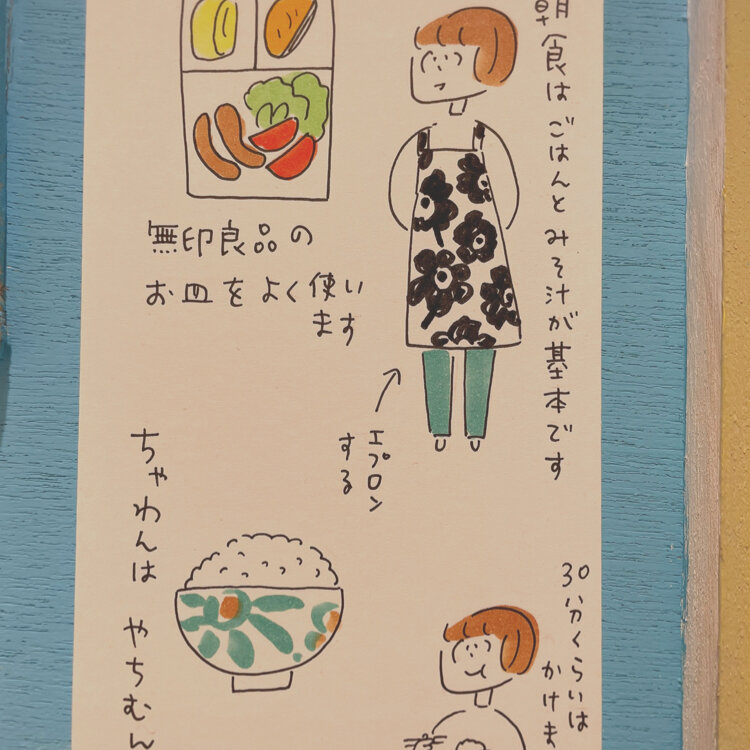 朝食は ごはんと みそ汁が 基本です
無印良品の
お皿をよく使い
ます
エプロン
する
ちゃわんは やちむん
30分くらいは
かけま